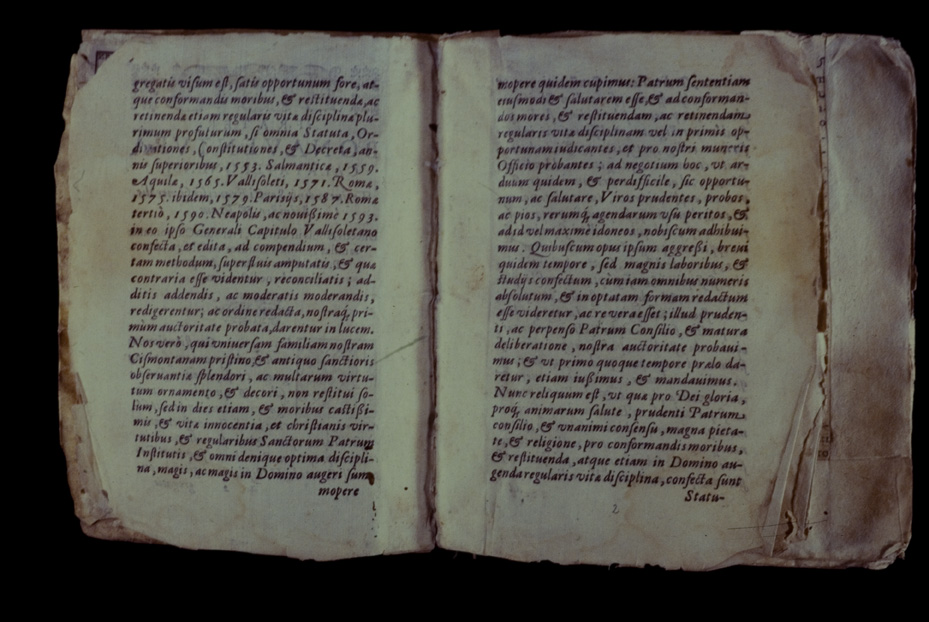 gregatis visum est, satis opportunum fore, at-
que conformandis moribus, & restituendæ, ac
retinendæ etiam regularis vitæ disciplinæ plu-
rimum profuturum, si omnia Statuta, Or-
dinationes, Constitutiones, & Decreta, an-
nis superioribus, 1553. Salmanticæ, 1559.
Aquilæ, 1565. Vallisoleti, 1571. Romæ,
1575. ibidem, 1579. Parisijs, 1587. Romæ
tertiò, 1590. Neapolis, ac nouißimè 1593.
in eo ipso Generali Capitulo Vallisoletano
confecta, et edita, ad compendium, & cer-
tam methodum, superfluis amputatis, & quæ
contraria esse videntur, reconciliatis; ad-
ditis addendis, ac moderatis moderandis,
redigerentur; ac ordine redacta, nostraq́, pri-
mùm auctoritate probata, darentur in lucem.
Nos verò, qui vniuersam familiam nostram
Cismontanam pristino, & antiquo sanctioris
obseruantiæ splendori, ac multarum virtu-
tum ornamento, & decori, non restitui so-
lùm, sed in dies etiam, & moribus castißi-
mis, & vitæ innocentia, et christianis vir-
tutibus, & regularibus Sanctorum Patrum
Institutis, & omni denique optima discipli-
na, magis, ac magis in Domino augeri sum-
mopere
mopere quidem cupimus: Patrum sententiam
eiusmodi & salutarem esse, & ad conforman-
dos mores, & restituendam, ac retinendam
regularis vitæ disciplinam vel in primis op-
portunam iudicantes, et pro nostri muneris
Officio probantes; ad negotium hoc, vt ar-
duum quidem, & perdifficile, sic opportu-
num, ac salutare, Viros prudentes, probos,
ac pios, rerumq́, agendarum vsu peritos, &
ad id vel maximè idoneos, nobiscum adhibui-
mus. Quibuscum opus ipsum aggreßi, breui
quidem tempore, sed magnis laboribus, &
studijs confectum, cùm iam omnibus numeris
absolutum, & in optatam formam redactum
esse videretur, ac re vera esset; illud pruden-
ti, ac perpenso Patrum Consilio, & matura
deliberatione, nostra auctoritate probaui-
mus; & vt primo quoque tempore prælo da-
retur, etiam iußimus, & mandauimus.
Nunc reliquum est, vt quæ pro Dei gloria,
proq́, animarum salute, prudenti Patrum
consilio, & vnanimi consensu, magna pieta-
te, & religione, pro conformandis moribus,
& restituenda, atque etiam in Domino au-
genda regularis vitæ disciplina, confecta sunt
Statu-
2